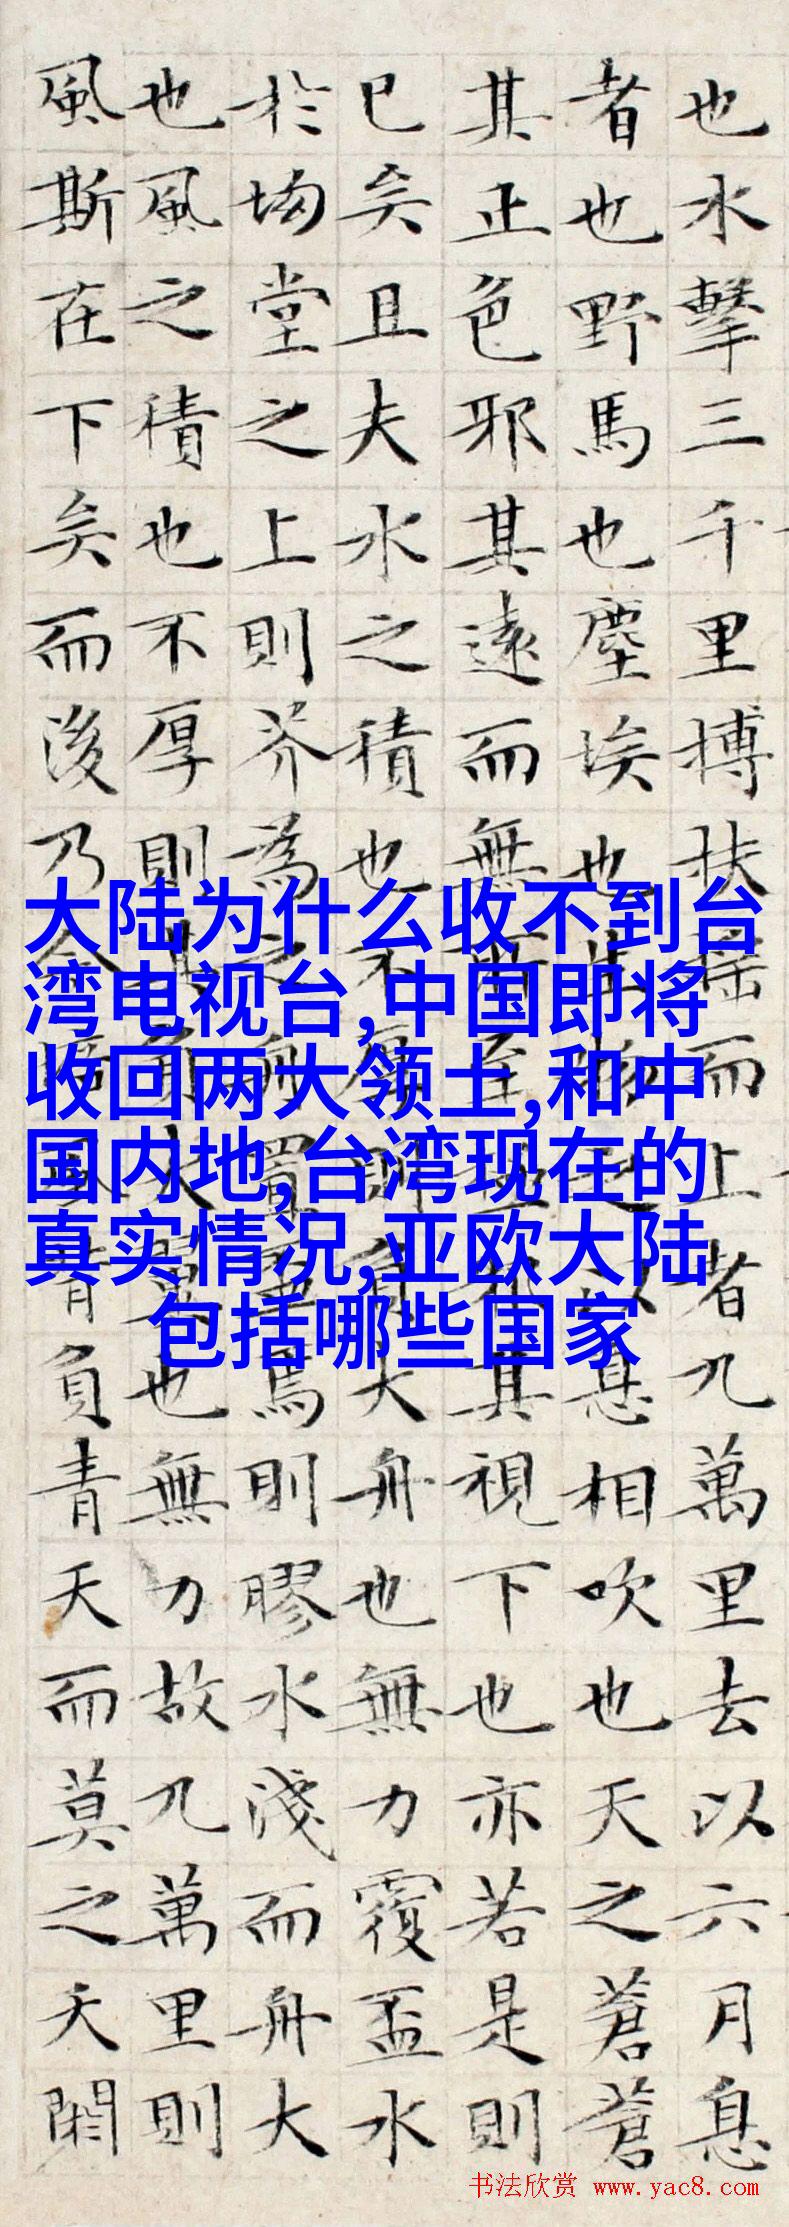 也水擊三千里搏扶搖而上者九萬里去以六月息
者也野馬也塵埃也生物之以息相吹也天之蒼蒼
其正色邪其遠而無所至極邪其視下也亦若是則
已矣且夫水之積也不厚則負大舟也無力覆盃水
於坳堂之上則芥為之舟置盃焉則膠水淺而舟大
也風之積也不厚則其負大翼也無力故九萬里則
風斯在下矣而後乃今培風背負青天而莫之夭閼
大陆为什么收不到台
湾电视台,中国即将
收回两大领土,和中
国内地,台湾现在的
真实情况,亚欧大陆
包括哪些国家
书法欣赏 www.yac8.com